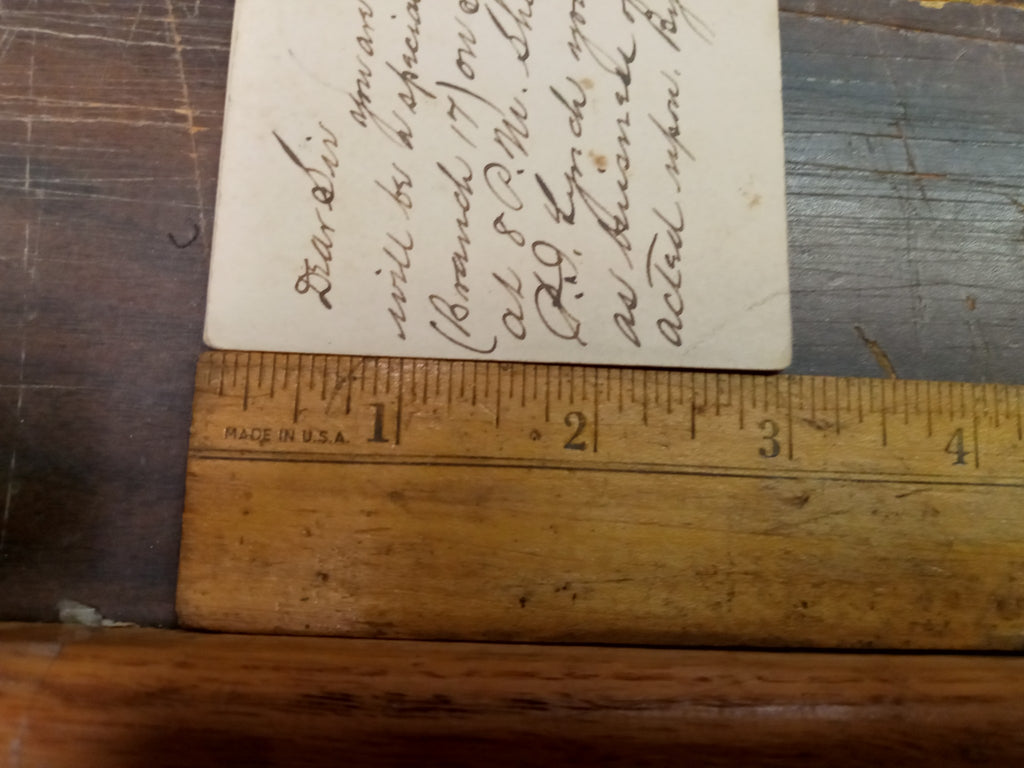 Dear Sir
you are
will be
(Branch 17) on
at 8 P.M. Sh
Lynch you
as business of
acted upon. By
MADE IN U.S.A.
1 2 3 4